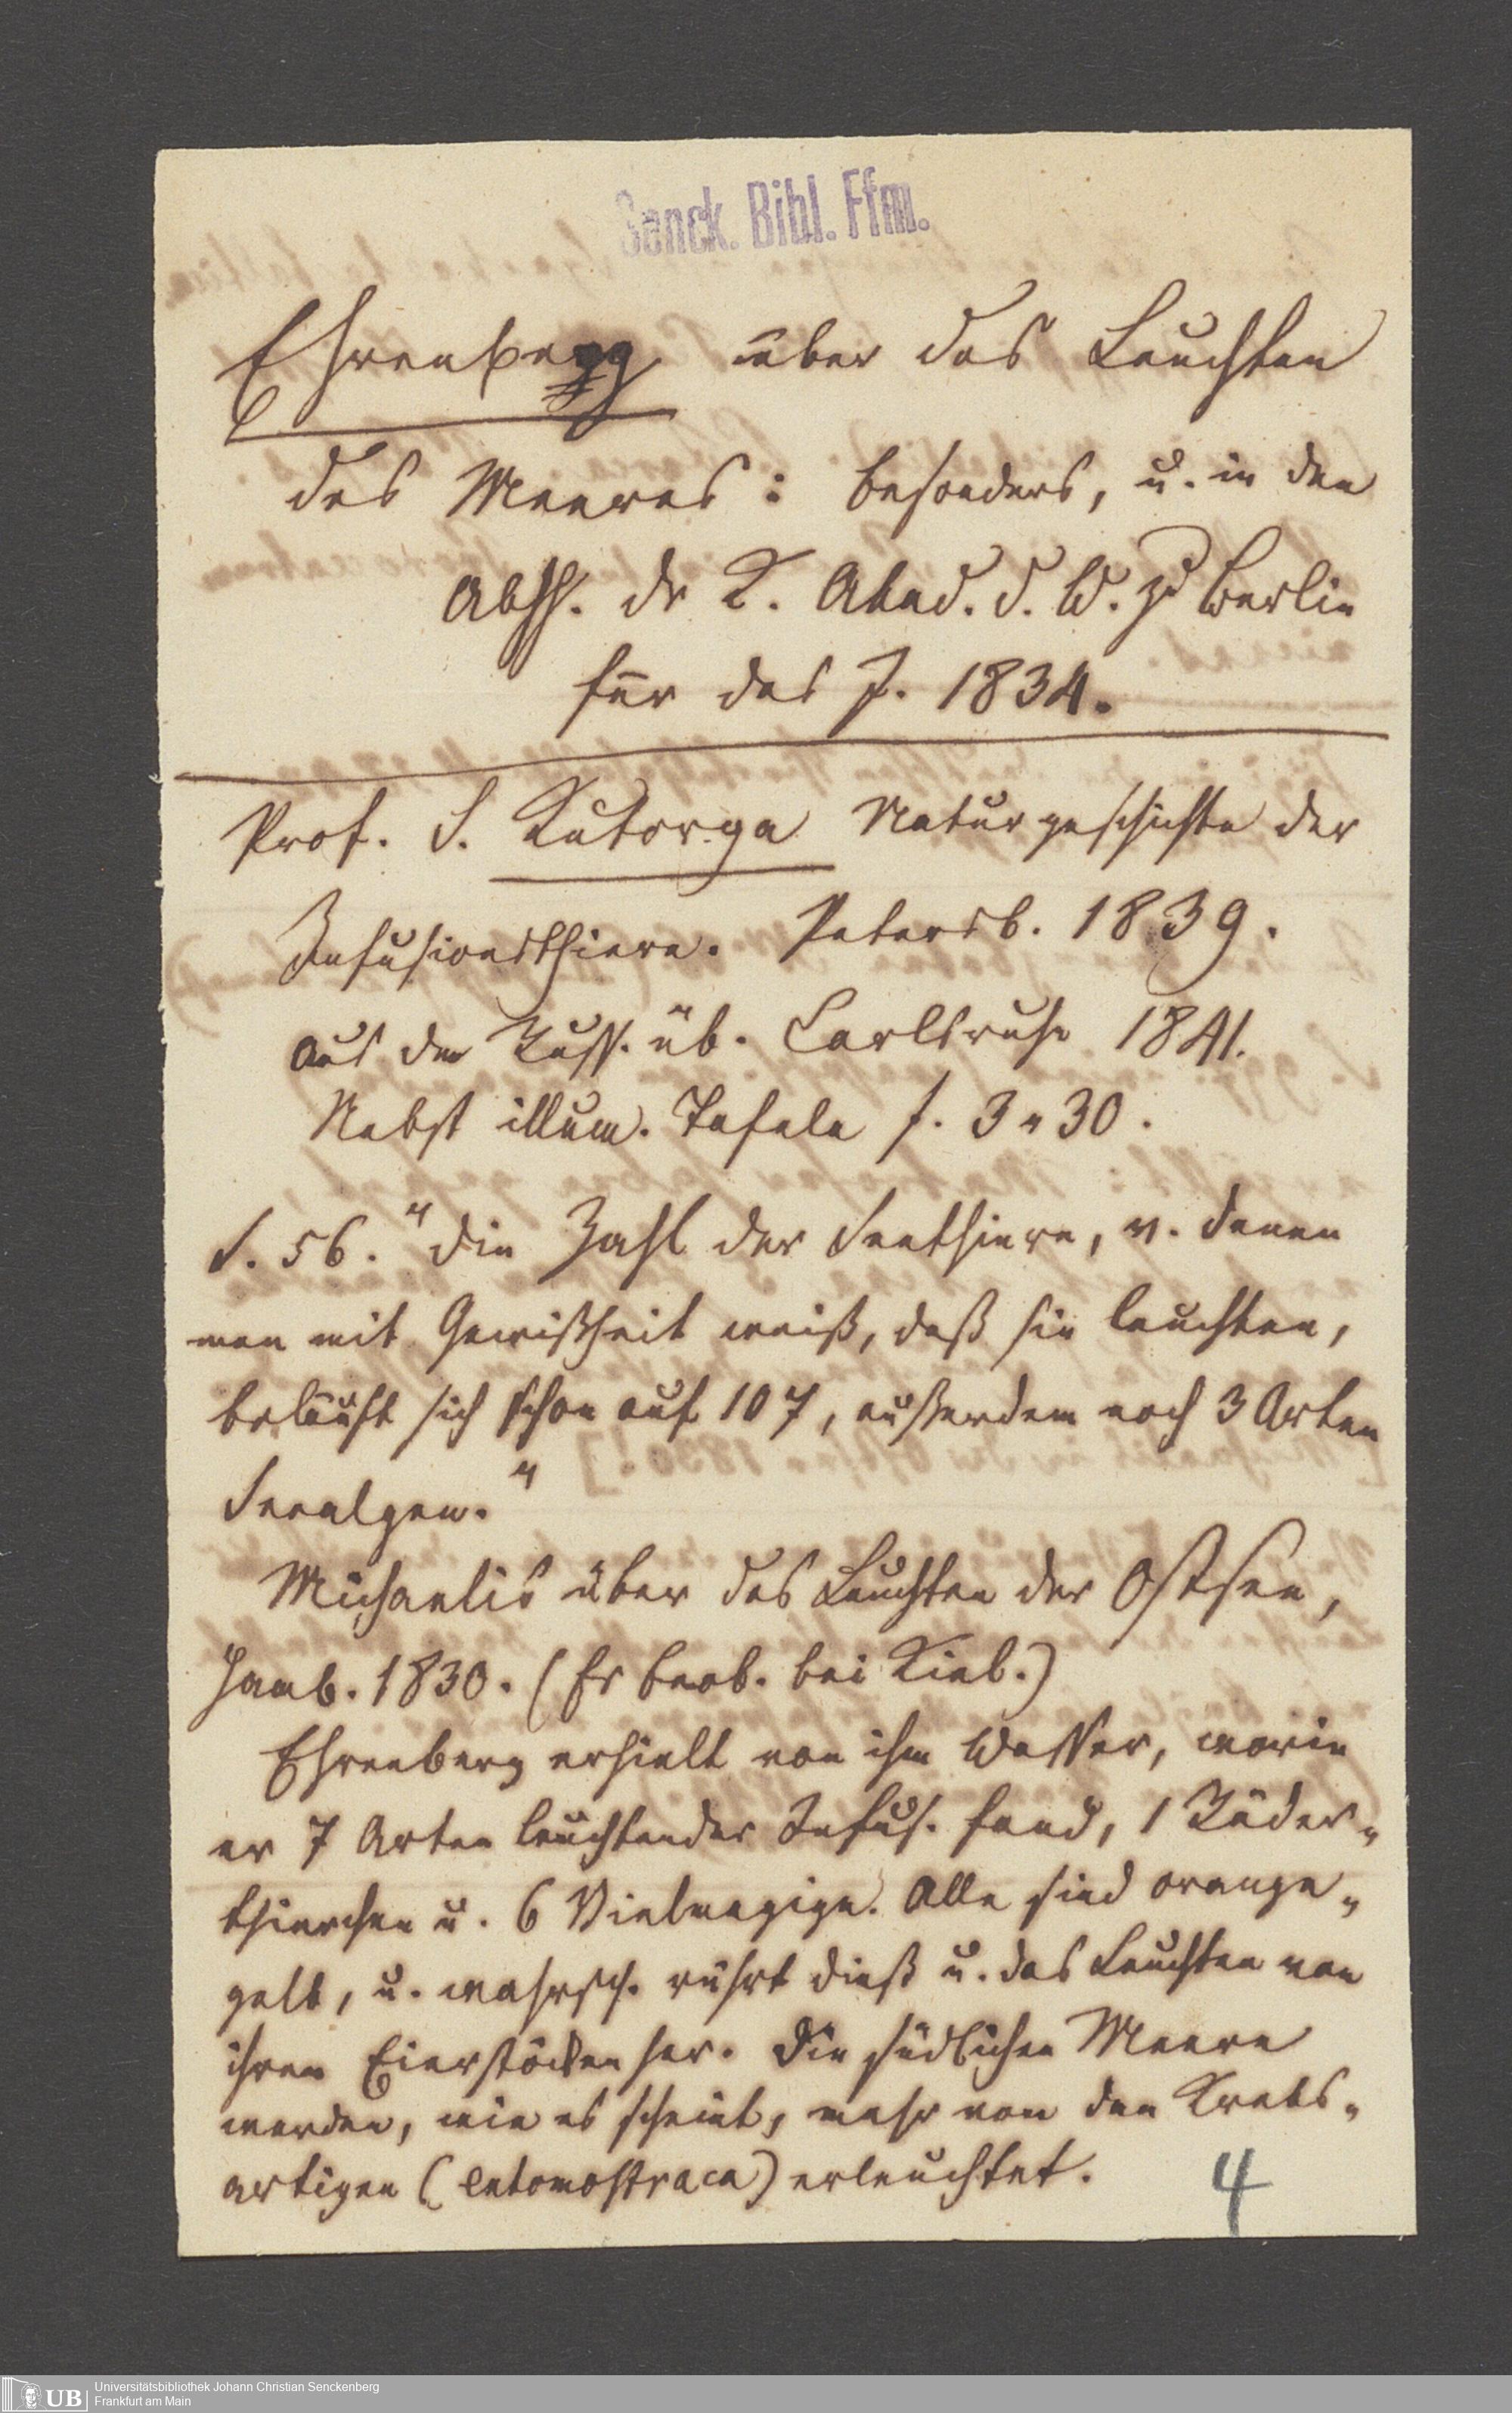 Senck. Bibl. Ffm.
Ehrenberg über das Leuchten
des Meeres: besonders, u. in den
Abhh. der K. Akad. d. W. zu Berlin
für das J. 1834.
Prof. S. Kutorga Naturgeschichte der
Infusionsthiere. Petersb. 1839.
aus dem Russ. üb. Carlsruhe 1841.
Nebst illum. Tafeln f. 3 „ 30.
S. 56. "Die Zahl der Seethiere, v. denen
man mit Gewißheit weiß, daß sie leuchten,
beläuft sich schon auf 107, außerdem noch 3 Arten
Seealgen."
Michaelis über das Leuchten der Ostsee,
Hamb. 1830. (Er beob. bei Kiel.)
Ehrenberg erhielt von ihm Wasser, worin
er 7 Arten leuchtender Infus. fand, 1 Räder-
thierchen u. 6 Vielmagige. Alle sind orange-
gelb, u. wahrsch. rührt dieß u. das Leuchten von
ihren Eierstöcken her. Die südlichen Meere
werden, wie es scheint, mehr von den Krebs-
artigen (Entomostraca) erleuchtet.
4
UB Universitätsbibliothek Johann Christian Senckenberg
Frankfurt am Main